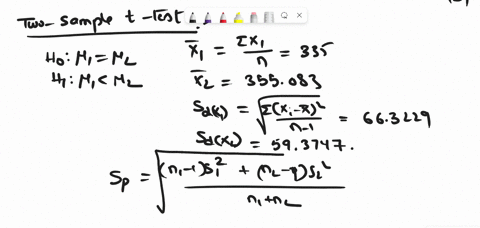 Two-Sample t-Test.
H₀: M₁ = M₂
H₁: M₁ < M₂
x̄₁ = Σx₁/n = 335
x̄₂ = 355.083
Sd(x₁) = √(Σ(xᵢ-x̄)²/(n-1)) = 66.3229
Sd(x₂) = 59.3747.
Sp = √((n₁-1)S₁² + (n₂-1)S₂²/(n₁+n₂))